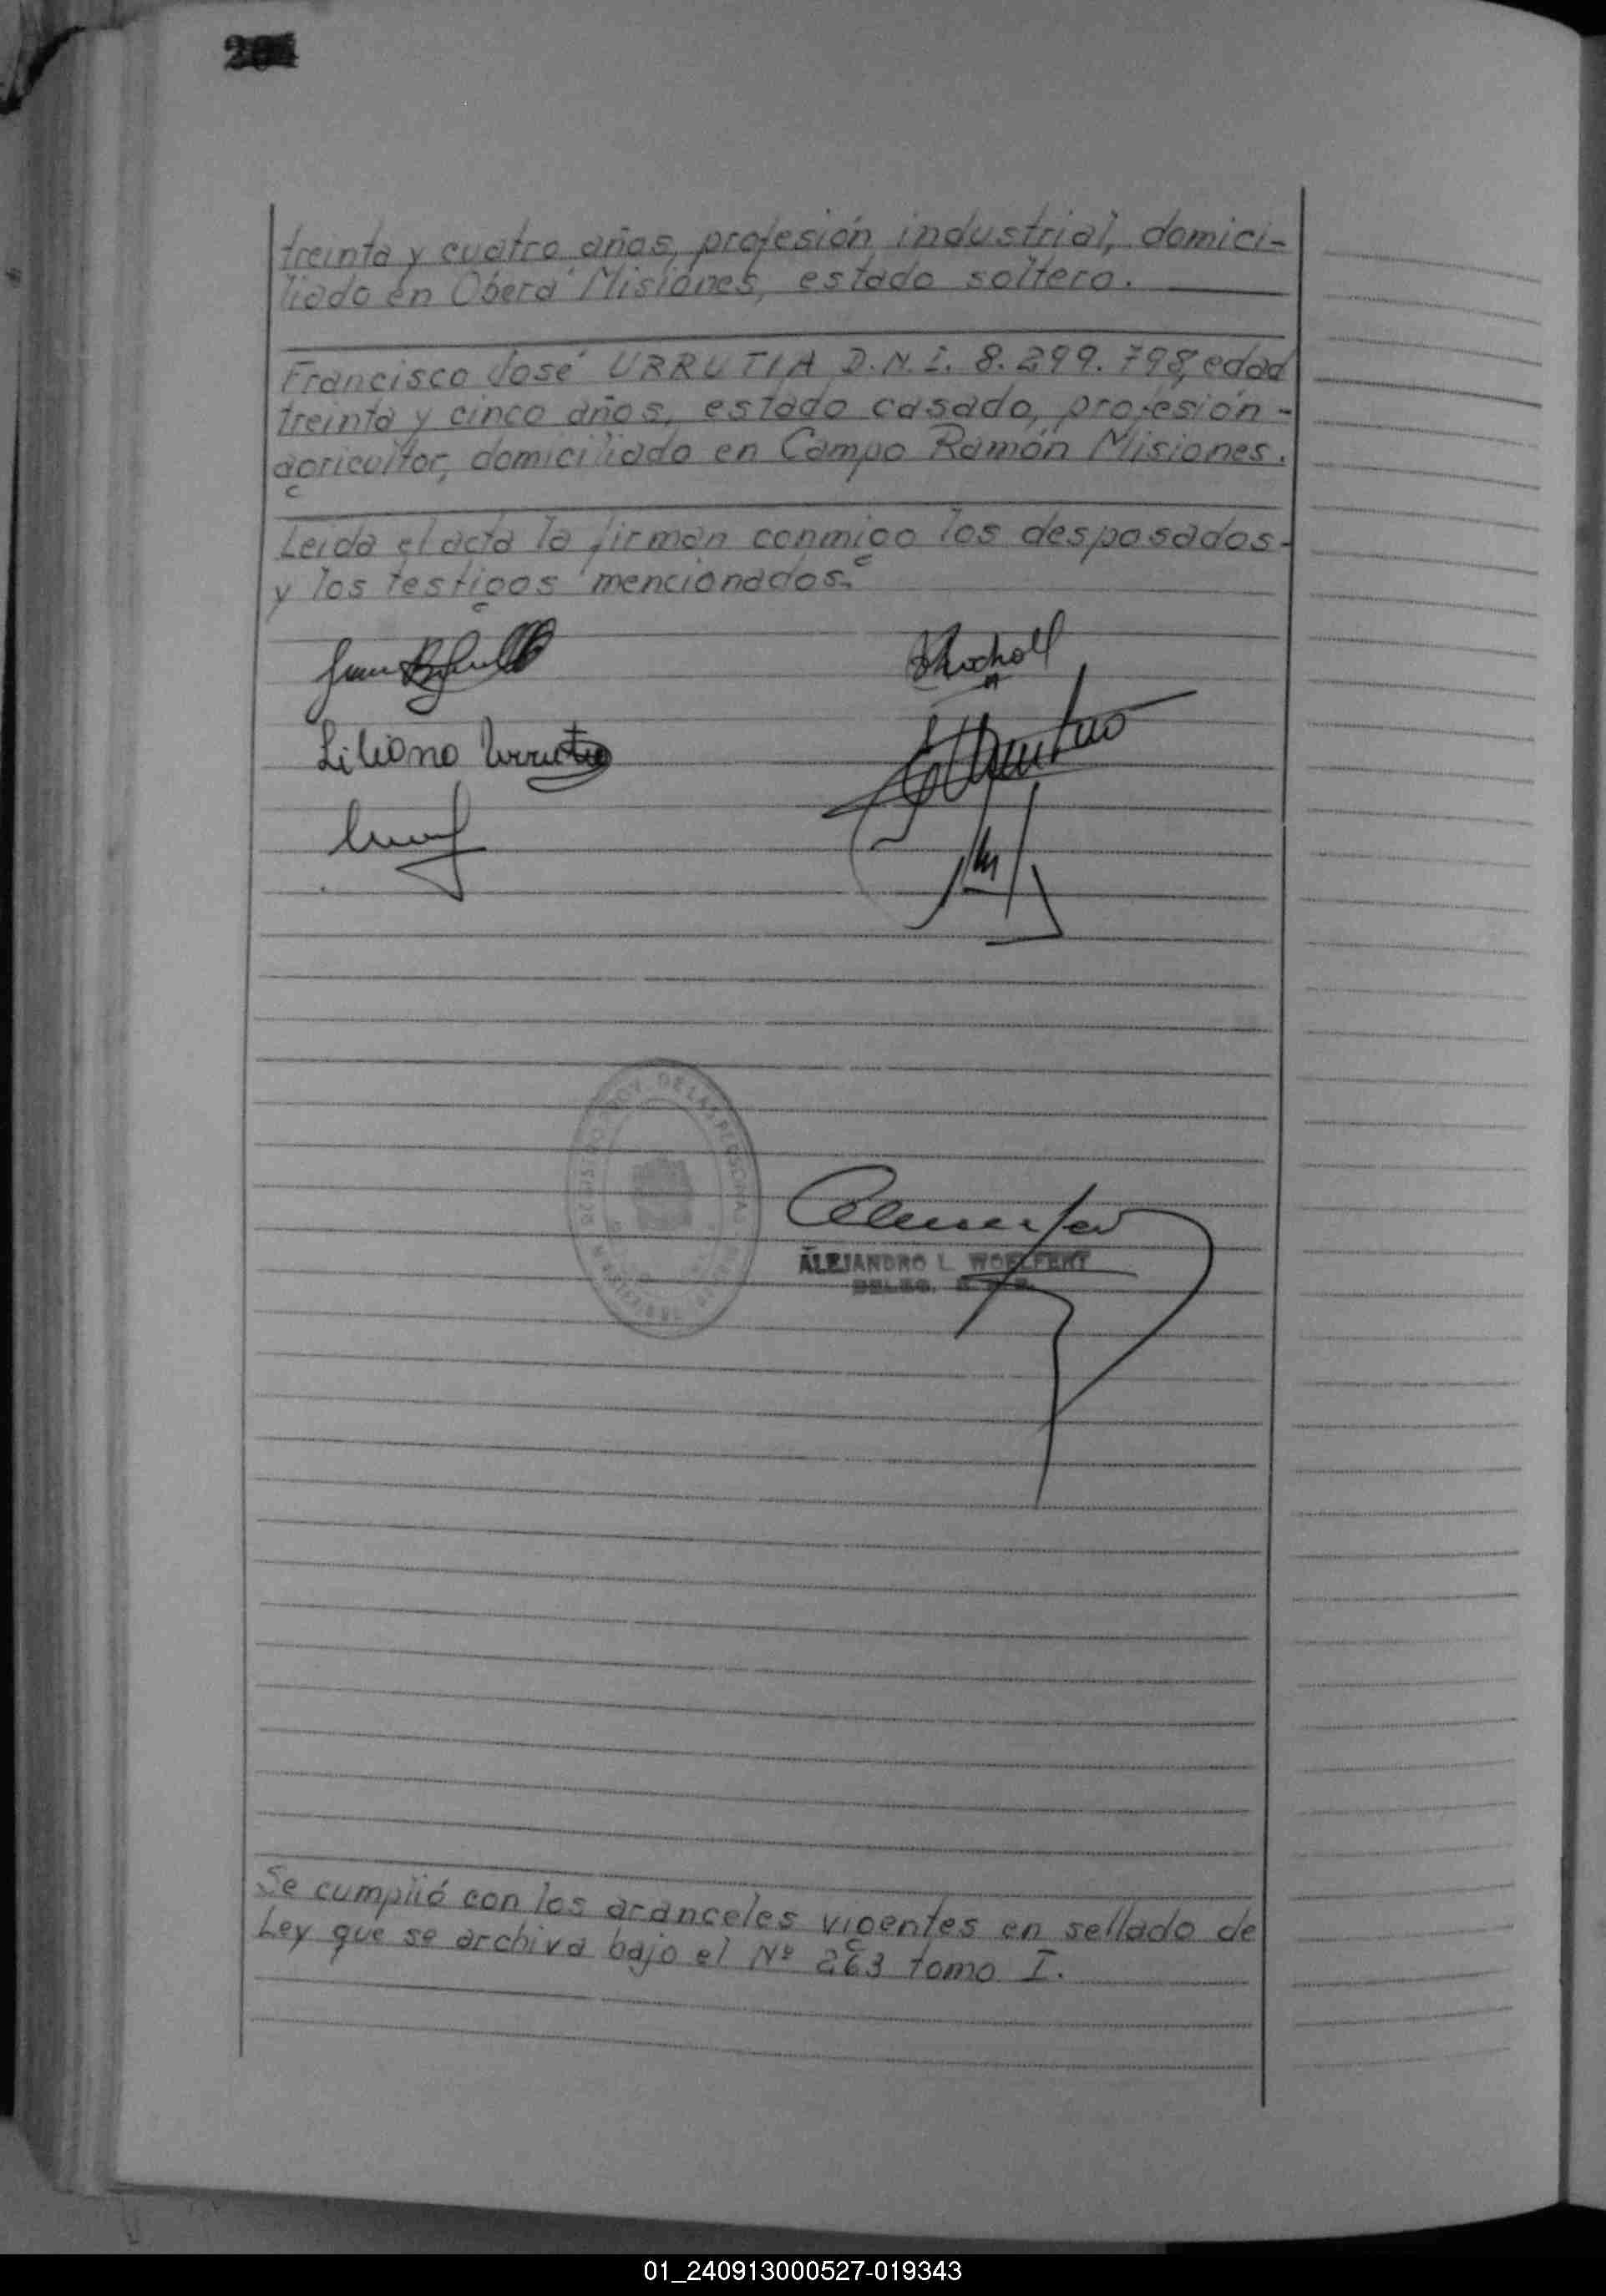 treinta y cuatro años, profesión industrial, domici-
liado en Oberá Misiones, estado soltero.
Francisco José URRUTIA D.N.I. 8.299.798, edad
treinta y cinco años, estado casado, profesión -
agricultor, domiciliado en Campo Ramón Misiones.
Leida el acta la firman conmigo los desposados-
y los testigos mencionados.
Liliana Urrutia
ALEJANDRO L. WOELFERT
DELEG.
Se cumplió con los aranceles vigentes en sellado de
Ley que se archiva bajo el Nº 263 tomo I.
01_240913000527-019343